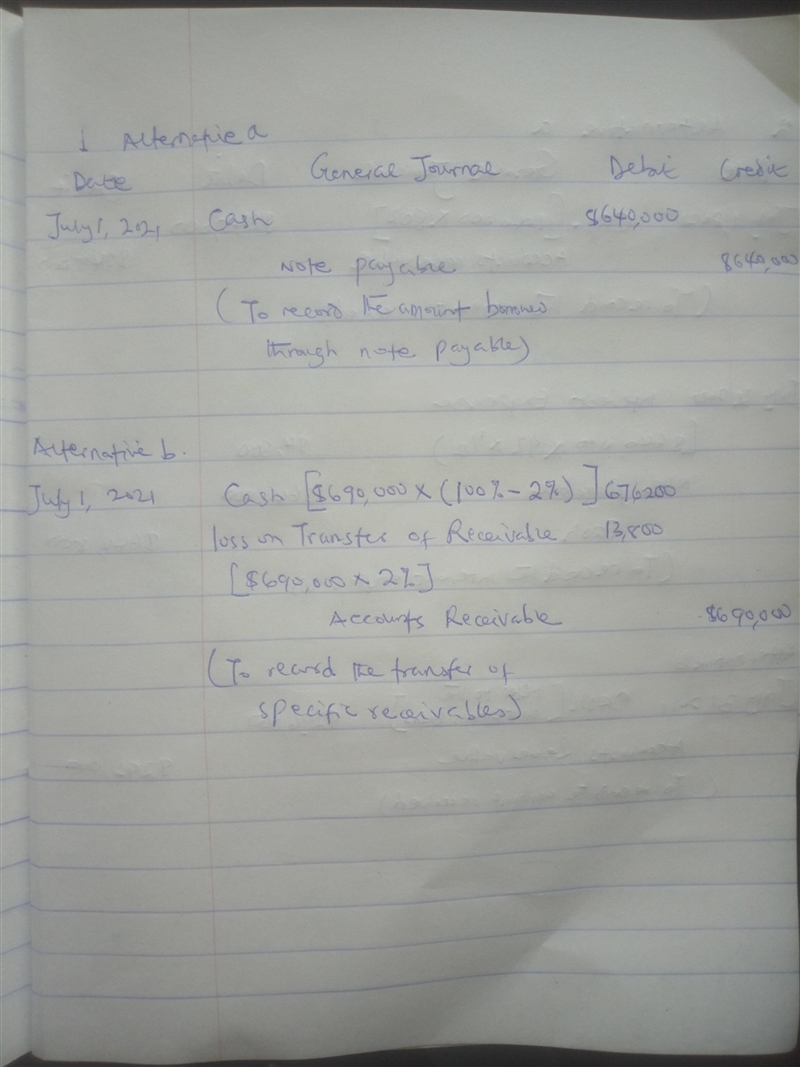 1 Alternative a
Date General Journal Debit Credit
July 1, 2021 Cash $640,000
Note payable $640,000
(To record the amount borrowed
through note payable)
Alternative b.
July 1, 2021 Cash [$690,000 × (100% - 2%)] 676200
loss on Transfer of Receivable 13,800
[$690,000 × 2%]
Accounts Receivable $690,000
(To record the transfer of
specific receivables)